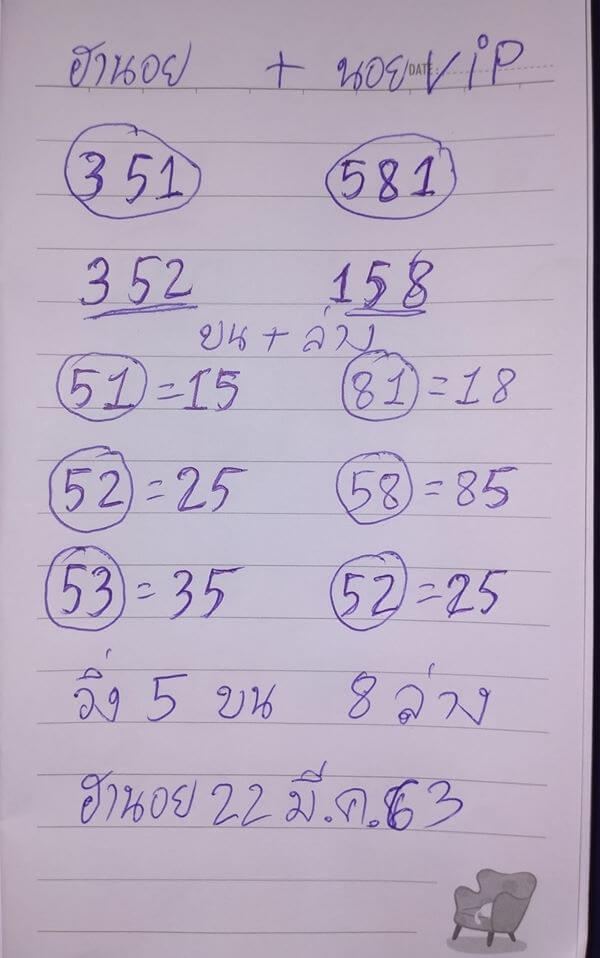 ฮานอย + นอย VIP
DATE
351 581
352 158
บน + ล่าง
51 = 15 81 = 18
52 = 25 58 = 85
53 = 35 52 = 25
วิ่ง 5 บน 8 ล่าง
ฮานอย 22 มี.ค.63